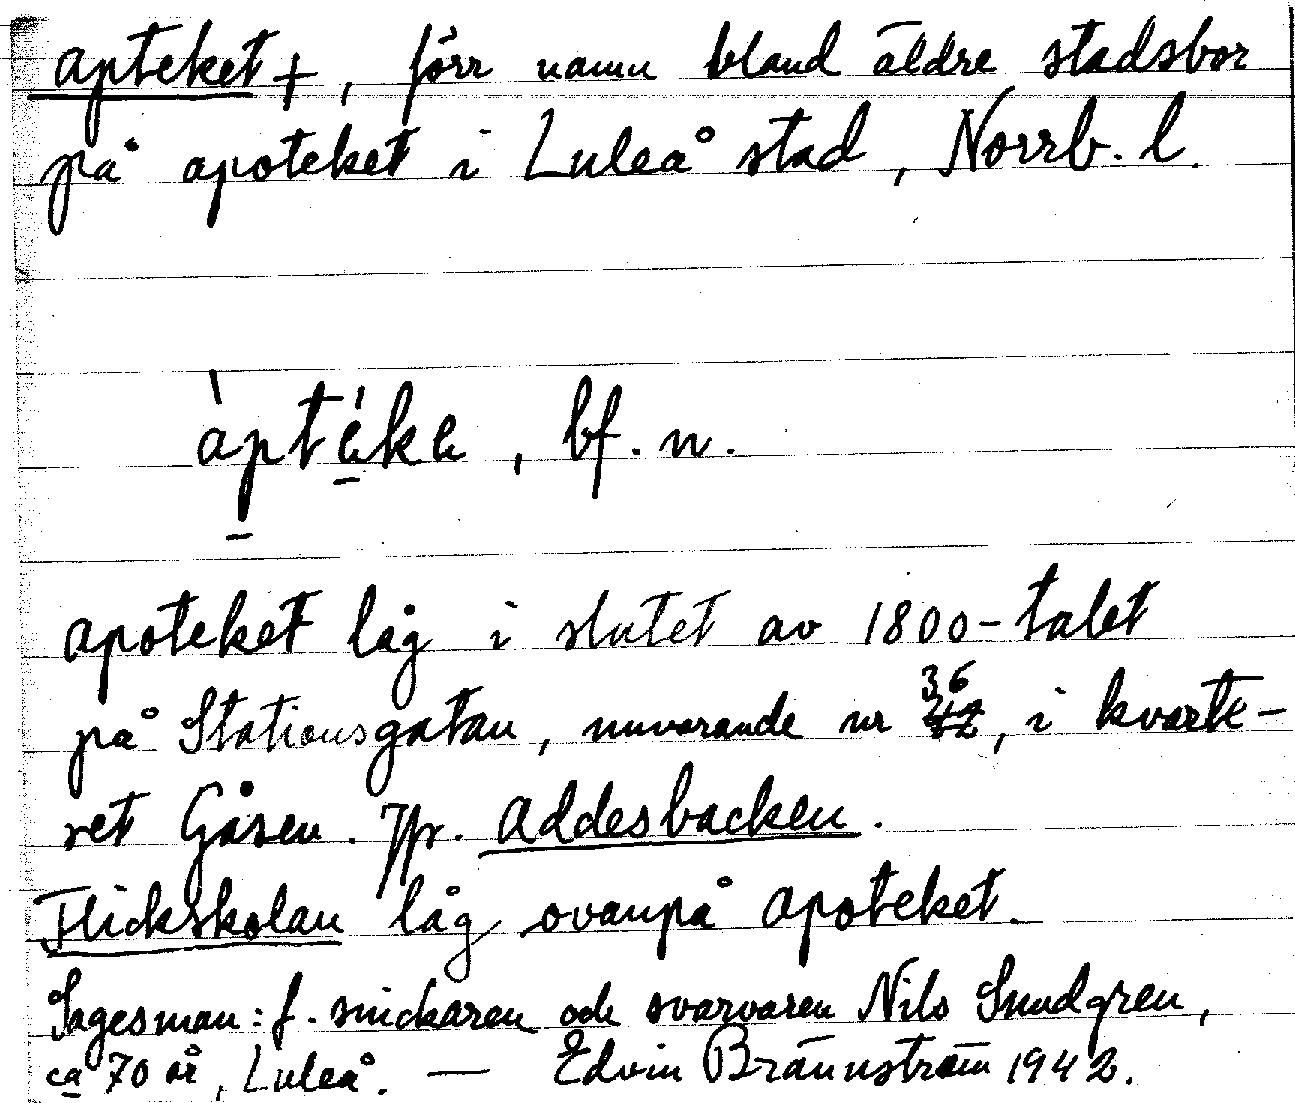 apteket +, förr namn bland äldre stadsbor
på apoteket i Luleå stad, Norrb. l.
àptéke, bf. n.
apoteket låg i slutet av 1800-talet
på Stationsgatan, nuvarande nr 36, i kvarte-
ret Gåsen. Jfr. Addesbacken.
Flickskolan låg ovanpå apoteket.
Sagesman: f. snickaren och svarvaren Nils Sundgren,
ca 70 år, Luleå. — Edvin Brännström 1942.